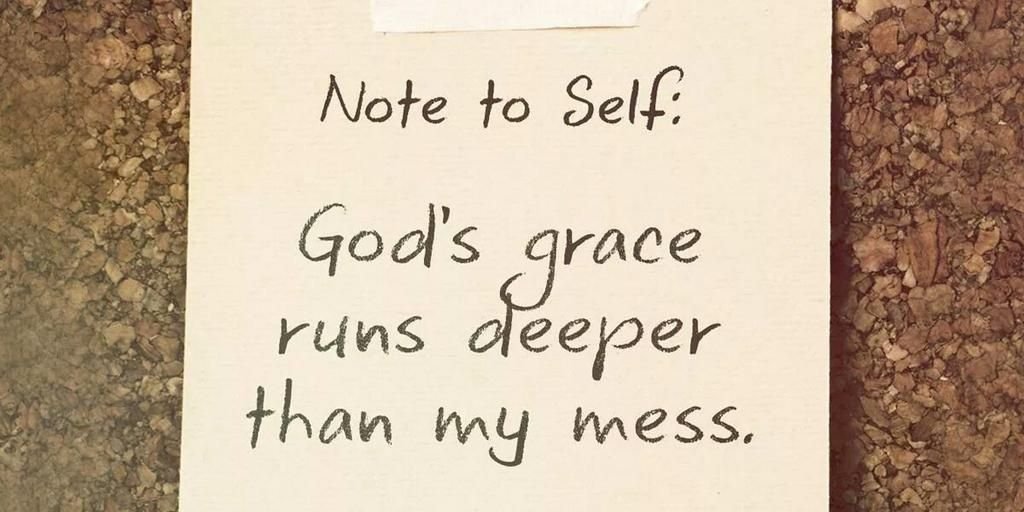 Note to Self:
God's grace
runs deeper
than my mess.